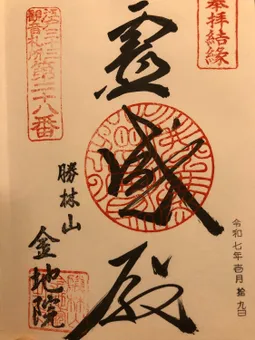 奉拝結縁
江戸三十三
観音札所第二十八番
霊感殿
勝林山
金地院
令和七年壱月拾九日